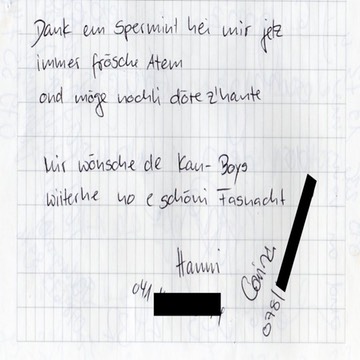 Dank em Spermint hei mir jetz
immer frösche Atem
ond möge nochli döre z'hante
Mir wönsche de Kau-Boys
wiiterhe no e schöni Fasnacht
Hanni
041
Corina
078/